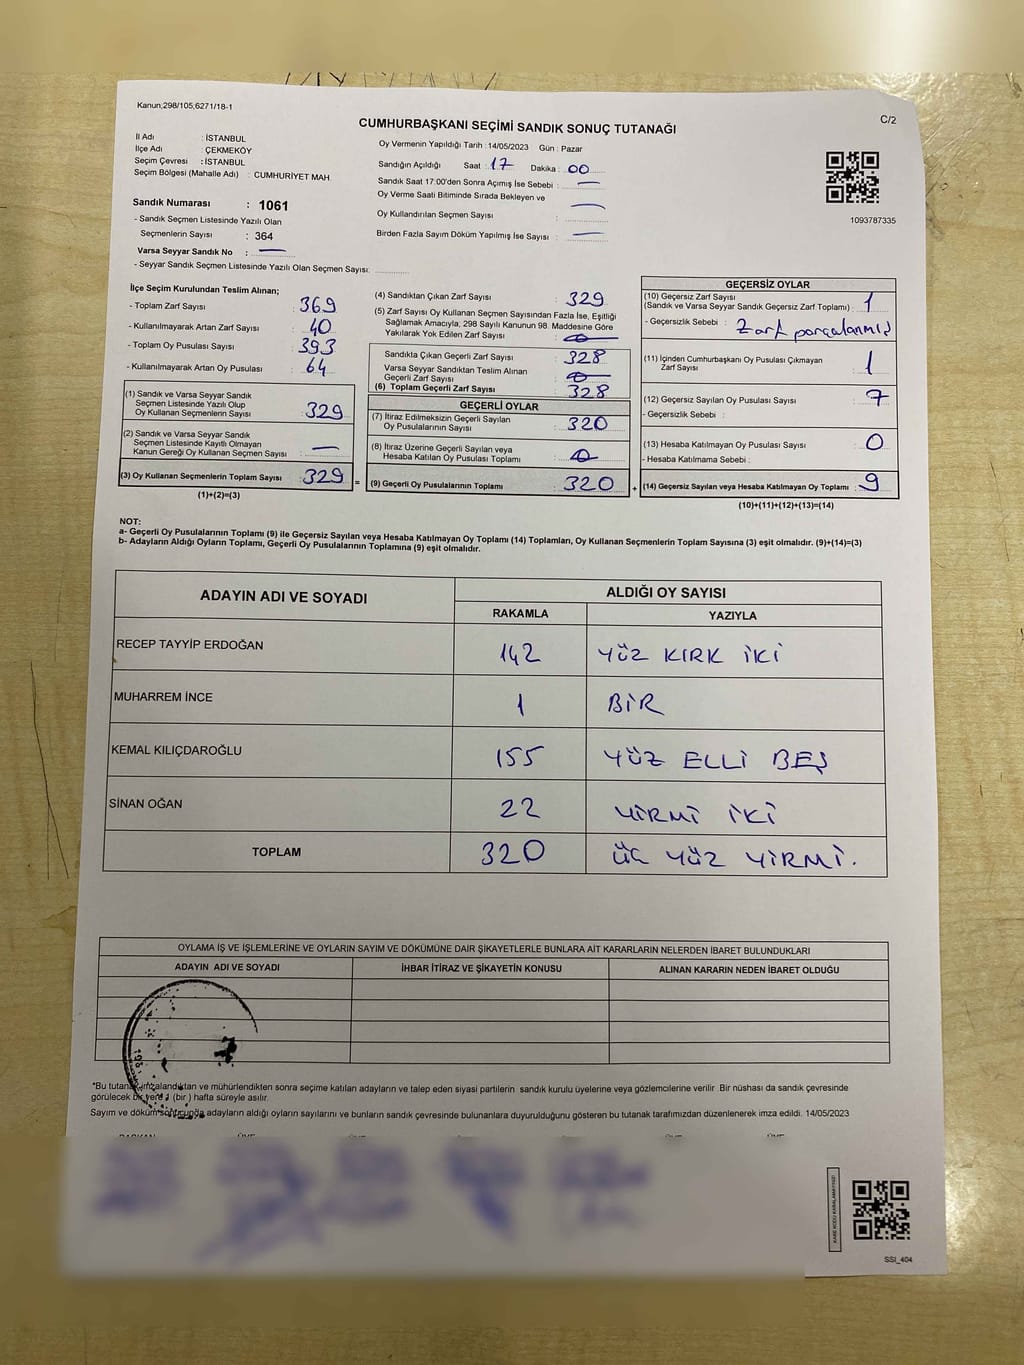 Kanun;298/105;6271/18-1
C/2
CUMHURBAŞKANI SEÇİMİ SANDIK SONUÇ TUTANAĞI
İl Adı : İSTANBUL
İlçe Adı : ÇEKMEKÖY
Seçim Çevresi : İSTANBUL
Seçim Bölgesi (Mahalle Adı) : CUMHURİYET MAH.
Sandık Numarası : 1061
- Sandık Seçmen Listesinde Yazılı Olan
Seçmenlerin Sayısı : 364
Varsa Seyyar Sandık No : —
- Seyyar Sandık Seçmen Listesinde Yazılı Olan Seçmen Sayısı:
Oy Vermenin Yapıldığı Tarih : 14/05/2023 Gün : Pazar
Sandığın Açıldığı Saat : 17 Dakika : 00
Sandık Saat 17:00'den Sonra Açımış İse Sebebi : —
Oy Verme Saati Bitiminde Sırada Bekleyen ve —
Oy Kullandırılan Seçmen Sayısı :
Birden Fazla Sayım Döküm Yapılmış İse Sayısı : —
1093787335
İlçe Seçim Kurulundan Teslim Alınan;
- Toplam Zarf Sayısı : 369
- Kullanılmayarak Artan Zarf Sayısı : 40
- Toplam Oy Pusulası Sayısı : 393
- Kullanılmayarak Artan Oy Pusulası : 64
(1) Sandık ve Varsa Seyyar Sandık
Seçmen Listesinde Yazılı Olup
Oy Kullanan Seçmenlerin Sayısı : 329
(2) Sandık ve Varsa Seyyar Sandık
Seçmen Listesinde Kayıtlı Olmayan
Kanun Gereği Oy Kullanan Seçmen Sayısı : —
(3) Oy Kullanan Seçmenlerin Toplam Sayısı : 329
(1)+(2)=(3)
(4) Sandıktan Çıkan Zarf Sayısı : 329
(5) Zarf Sayısı Oy Kullanan Seçmen Sayısından Fazla İse, Eşitliği
Sağlamak Amacıyla; 298 Sayılı Kanunun 98. Maddesine Göre
Yakılarak Yok Edilen Zarf Sayısı : 0
Sandıkta Çıkan Geçerli Zarf Sayısı : 328
Varsa Seyyar Sandıktan Teslim Alınan
Geçerli Zarf Sayısı : 0
(6) Toplam Geçerli Zarf Sayısı : 328
GEÇERLİ OYLAR
(7) İtiraz Edilmeksizin Geçerli Sayılan
Oy Pusulalarının Sayısı : 320
(8) İtiraz Üzerine Geçerli Sayılan veya
Hesaba Katılan Oy Pusulası Toplamı : 0
= (9) Geçerli Oy Pusulalarının Toplamı : 320
GEÇERSİZ OYLAR
(10) Geçersiz Zarf Sayısı
(Sandık ve Varsa Seyyar Sandık Geçersiz Zarf Toplamı) : 1
- Geçersizlik Sebebi : Zarf parçalanmış
(11) İçinden Cumhurbaşkanı Oy Pusulası Çıkmayan
Zarf Sayısı : 1
(12) Geçersiz Sayılan Oy Pusulası Sayısı : 7
- Geçersizlik Sebebi :
(13) Hesaba Katılmayan Oy Pusulası Sayısı : 0
- Hesaba Katılmama Sebebi :
+ (14) Geçersiz Sayılan veya Hesaba Katılmayan Oy Toplamı : 9
(10)+(11)+(12)+(13)=(14)
NOT:
a- Geçerli Oy Pusulalarının Toplamı (9) ile Geçersiz Sayılan veya Hesaba Katılmayan Oy Toplamı (14) Toplamları, Oy Kullanan Seçmenlerin Toplam Sayısına (3) eşit olmalıdır. (9)+(14)=(3)
b- Adayların Aldığı Oyların Toplamı, Geçerli Oy Pusulalarının Toplamına (9) eşit olmalıdır.
ADAYIN ADI VE SOYADI ALDIĞI OY SAYISI
RAKAMLA YAZIYLA
RECEP TAYYİP ERDOĞAN 142 YÜZ KIRK İKİ
MUHARREM İNCE 1 BİR
KEMAL KILIÇDAROĞLU 155 YÜZ ELLİ BEŞ
SİNAN OĞAN 22 YİRMİ İKİ
TOPLAM 320 ÜÇ YÜZ YİRMİ.
OYLAMA İŞ VE İŞLEMLERİNE VE OYLARIN SAYIM VE DÖKÜMÜNE DAİR ŞİKAYETLERLE BUNLARA AİT KARARLARIN NELERDEN İBARET BULUNDUKLARI
ADAYIN ADI VE SOYADI İHBAR İTİRAZ VE ŞİKAYETİN KONUSU ALINAN KARARIN NEDEN İBARET OLDUĞU
*Bu tutanak imzalandıktan ve mühürlendikten sonra seçime katılan adayların ve talep eden siyasi partilerin sandık kurulu üyelerine veya gözlemcilerine verilir. Bir nüshası da sandık çevresinde
görülecek bir yere 1 (bir ) hafta süreyle asılır.
Sayım ve döküm sonucunda adayların aldığı oyların sayılarını ve bunların sandık çevresinde bulunanlara duyurulduğunu gösteren bu tutanak tarafımızdan düzenlenerek imza edildi. 14/05/2023
SSI_404